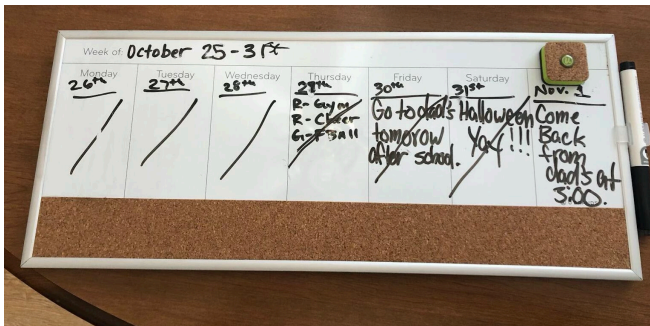 Week of: October 25-31st
Monday Tuesday Wednesday Thursday Friday Saturday
26th 27th 28th 29th 30th 31st Nov. 1
R- Gym
R- Cheer
G- F Ball
Go to dad's
tomorow
after school.
Halloween
Yay!!!
Come
Back
from
dad's at
5:00.